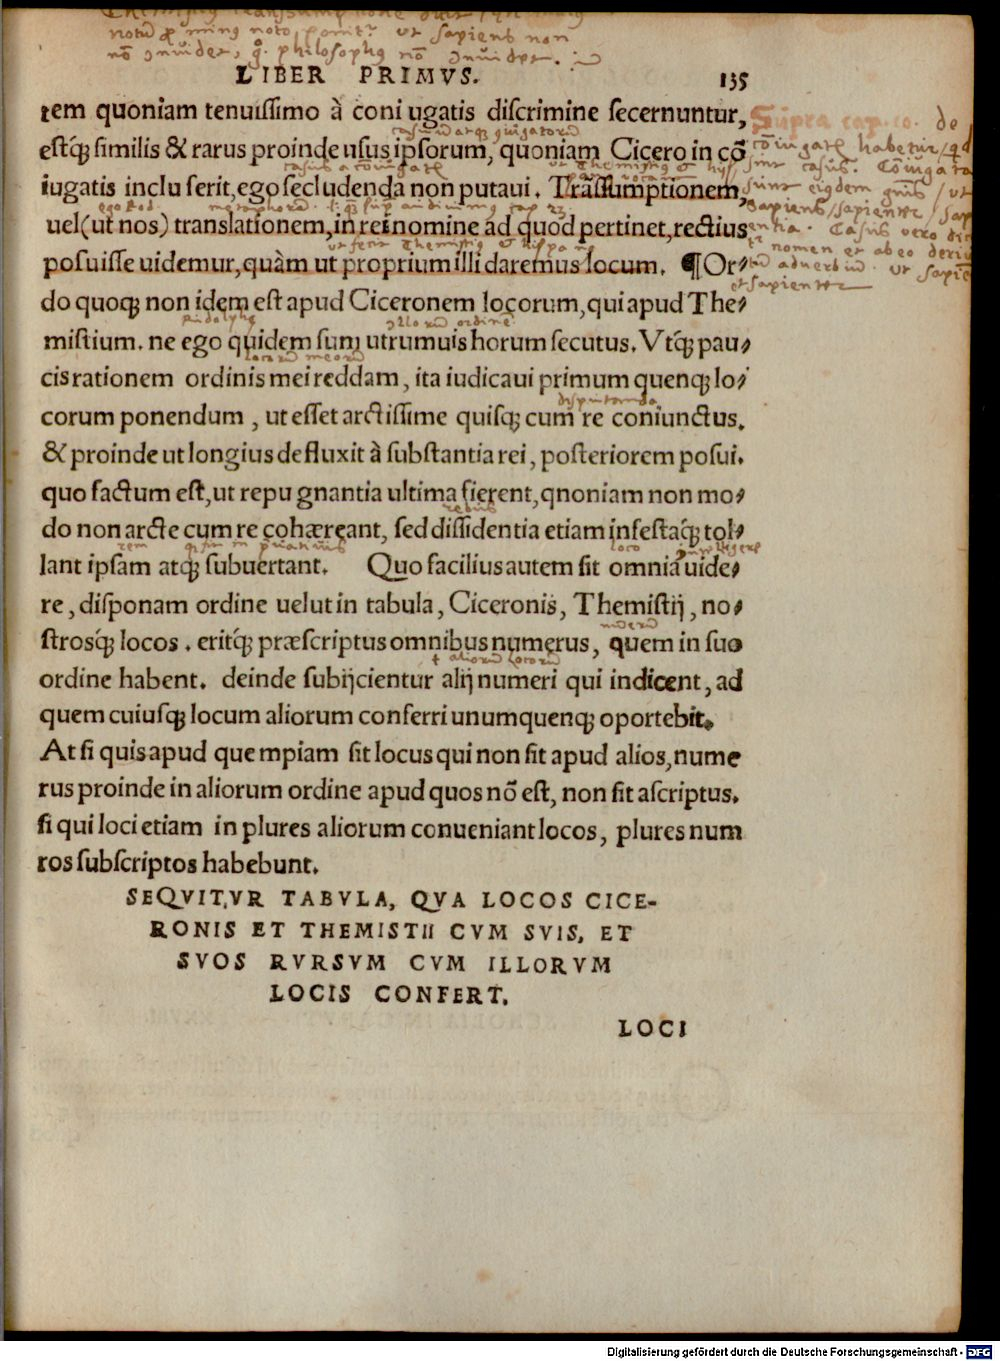 notum pro minus noto, ut sapiens non
non inuidet, philosophus non inuidet.
LIBER PRIMVS. 135
tem quoniam tenuissimo à coni ugatis discrimine secernuntur,
estq́ꝫ similis & rarus proinde usus ipsorum, quoniam Cicero in cõ
iugatis inclu serit, ego secludenda non putaui. Trãssumptionem,
uel (ut nos) translationem, in rei nomine ad quod pertinet, rectius
posuisse uidemur, quàm ut proprium illi daremus locum. ¶Or-
do quoqꝫ non idem est apud Ciceronem locorum, qui apud The-
mistium. ne ego quidem sum utrumuis horum secutus. Vtq́ꝫ pau-
cis rationem ordinis mei reddam, ita iudicaui primum quenqꝫ lo-
corum ponendum, ut esset arctissime quisqꝫ cum re coniunctus.
& proinde ut longius defluxit à substantia rei, posteriorem posui.
quo factum est, ut repu gnantia ultima fierent, qnoniam non mo-
do non arcte cum re cohæreant, sed dissidentia etiam infestaq́ꝫ tol-
lant ipsam atqꝫ subuertant. Quo facilius autem sit omnia uide-
re, disponam ordine uelut in tabula, Ciceronis, Themistij, no-
strosq́ꝫ locos. eritq́ꝫ præscriptus omnibus numerus, quem in suo
ordine habent. deinde subijcientur alij numeri qui indicent, ad
quem cuiusqꝫ locum aliorum conferri unumquenqꝫ oportebit.
At si quis apud que mpiam sit locus qui non sit apud alios, nume
rus proinde in aliorum ordine apud quos nõ est, non sit ascriptus.
si qui loci etiam in plures aliorum conueniant locos, plures num
ros subscriptos habebunt.
SEQVITVR TABVLA, QVA LOCOS CICE-
RONIS ET THEMISTII CVM SVIS, ET
SVOS RVRSVM CVM ILLORVM
LOCIS CONFERT.
LOCI
Supra cap. de
habetur
casus
sapiens/sapienter
Casus vero
nomen et ab eo
aduerbium. ut
et sapienter
Digitalisierung gefördert durch die Deutsche Forschungsgemeinschaft - DFG